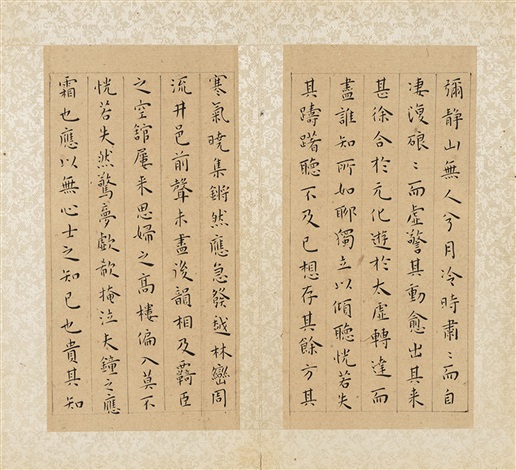 彌靜山無人兮月冷時肅〻而自
凄復硠〻而虛警其動愈出其来
甚徐合於元化遊於太虛轉達而
盡誰知所如聊獨立以傾聽恍若失
其躊躇聽不及已想存其餘方其
寒氣曉集鏘然應急發越林巒周
流井邑前聲未盡後韻相及覊臣
之空舘屢来思婦之髙樓偏入莫不
恍若失然驚夢歔欷掩泣夫鐘之應
霜也應以無心士之知已也貴其知